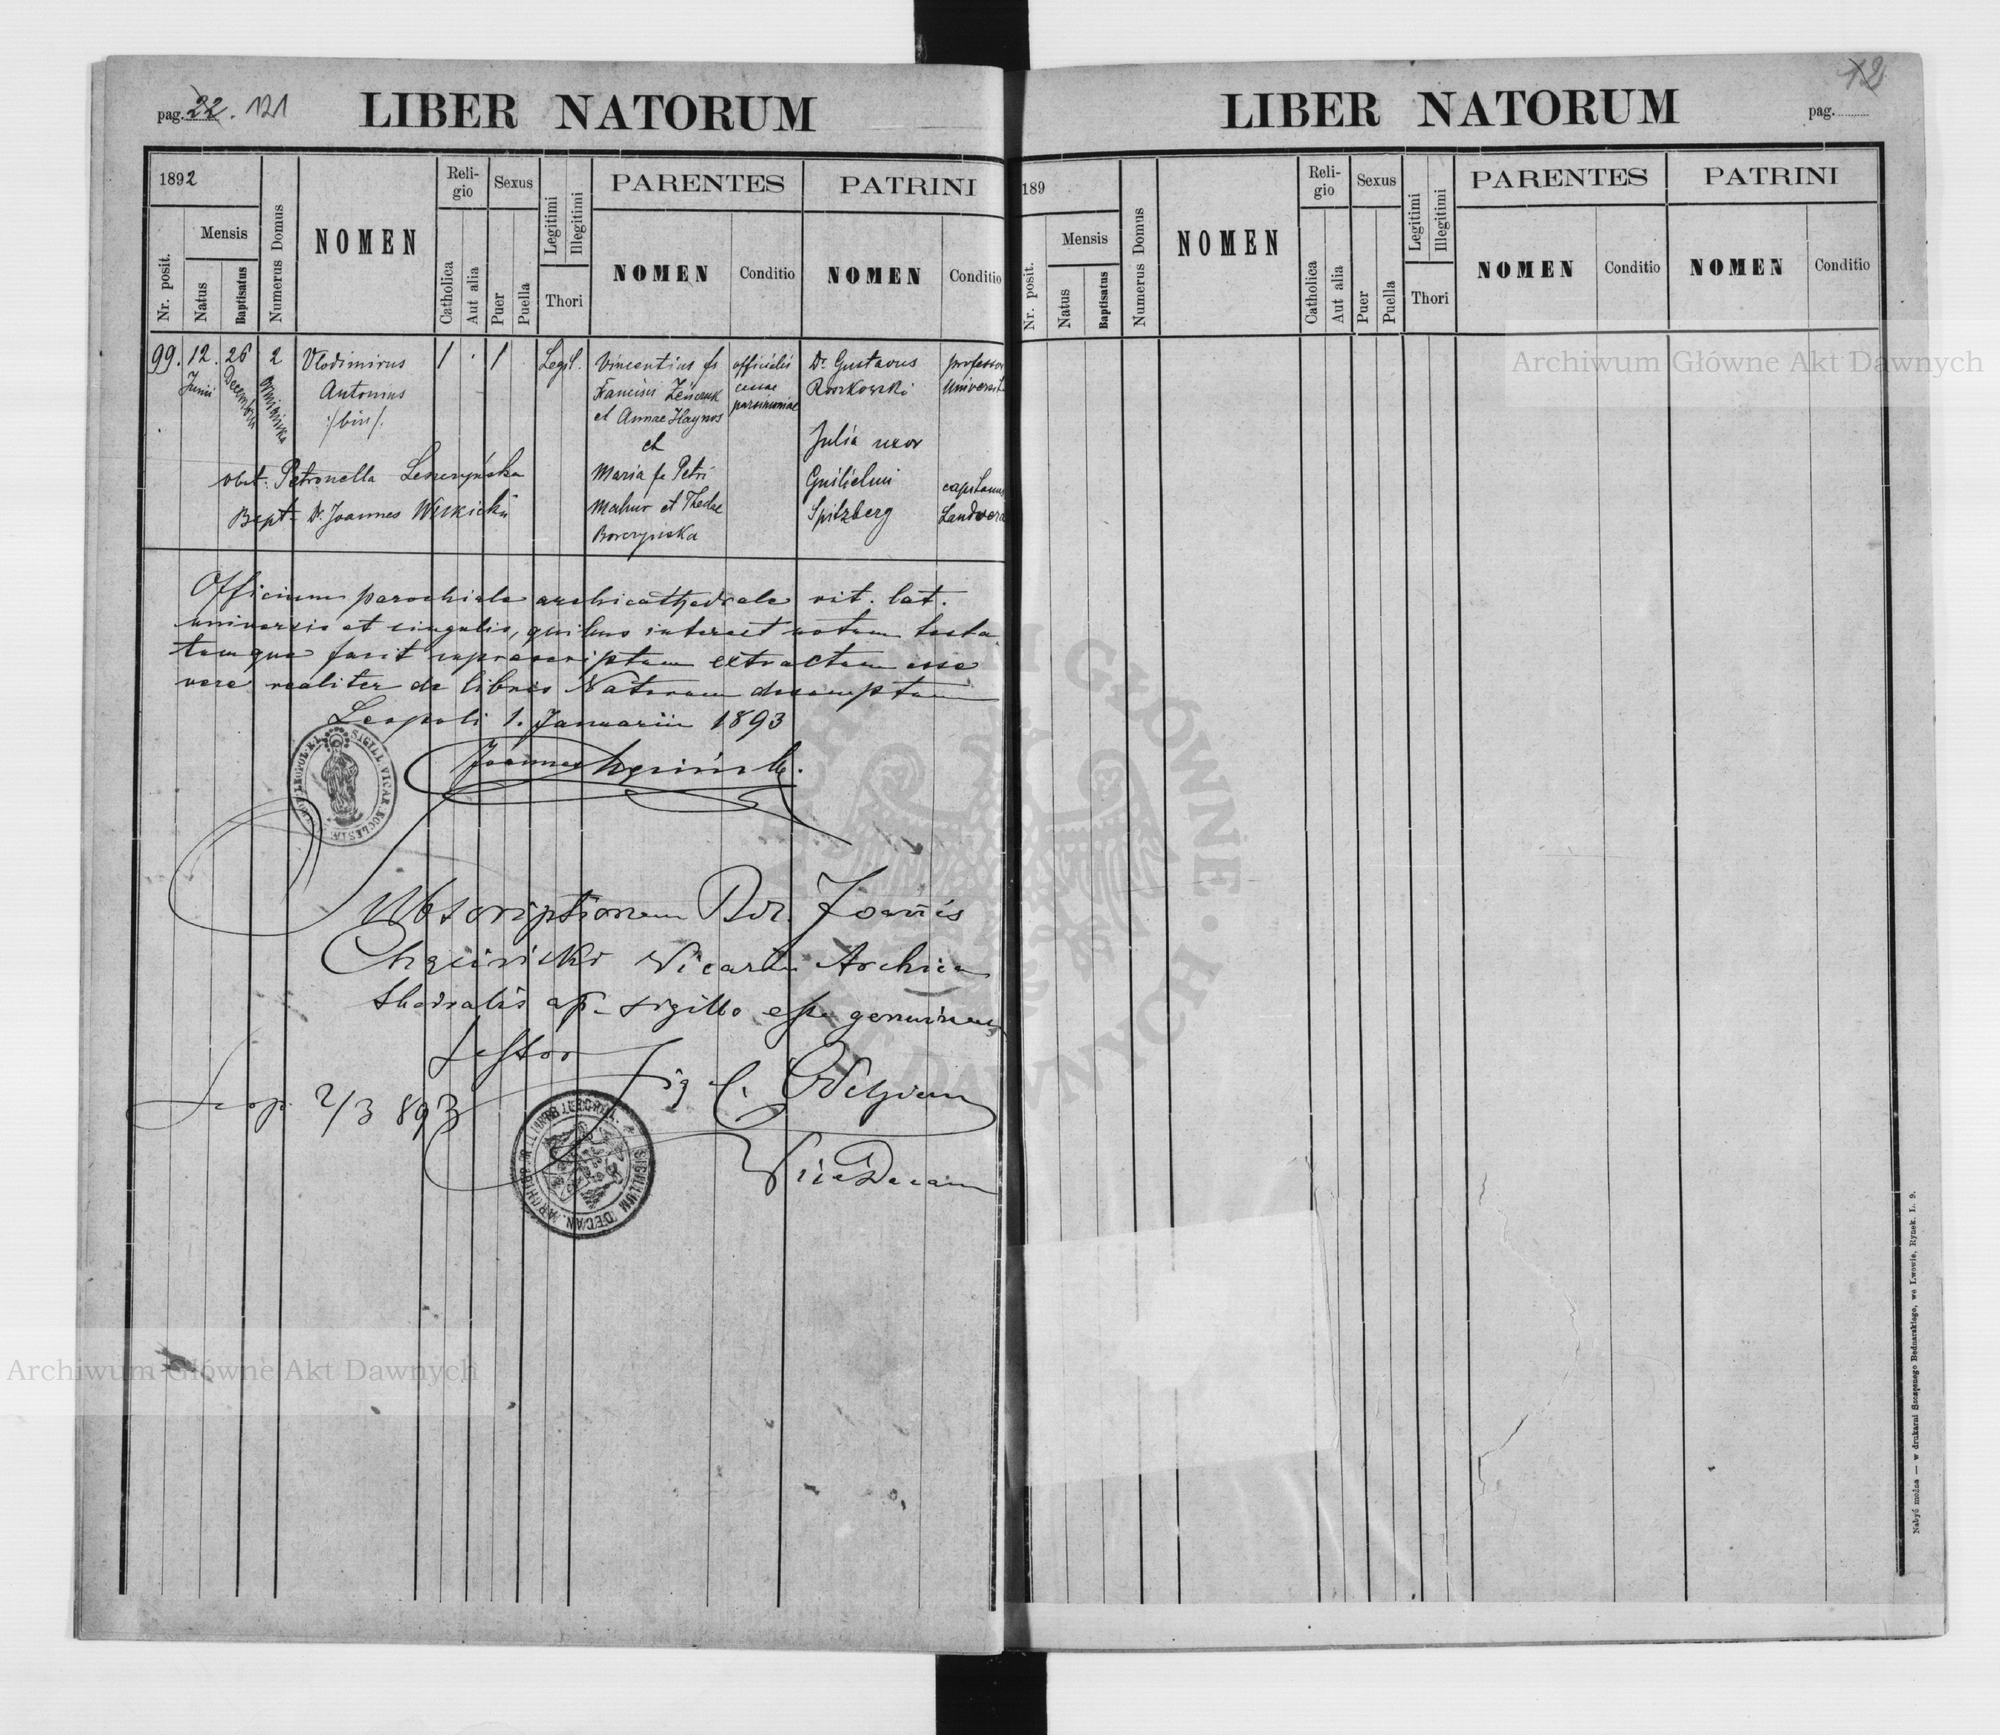 pag. 22. 121
LIBER NATORUM
1892
Nr. posit.
Mensis
Natus
Baptisatus
Numerus Domus
NOMEN
Religio
Catholica
Aut alia
Sexus
Puer
Puella
Legitimi
Illegitimi
Thori
PARENTES
NOMEN
Conditio
PATRINI
NOMEN
Conditio
99. 12. 26 2 Vlodimirus 1 . 1 Legit. Vincentius fs officialis Dr. Gustavus professor
Junii Decembris Antonius Francisci cassae Roszkowski Universit
/bin/. et Annae Haynos parsimoniae
et Julia uxor
obst. Petronella Leszczyńska Maria fa Petri Guilielmi capitanus
Bapt. Dr. Joannes et Theclae Spitzberg Landwera
Borczyńska
Officium parochiale archicathedrale rit. lat.
universis et singulis, quibus interest notum testa
tumque facit suprascriptum extractum esse
vere realiter de libris Natorum desumptum
Leopoli 1. Januarii 1893
Joannes Chęciński.
SIGILL. VICAR. ECCLESIÆ
Subscriptionem Rdi. Joannis
Chęciński Vicarii Archica
thedralis ap. sigillo esse genuinam
testor
Leop. 2/3 893
SIGILLUM DECAN.
ViceDecan
LIBER NATORUM
12
pag.
189
Nr. posit.
Mensis
Natus
Baptisatus
Numerus Domus
NOMEN
Religio
Catholica
Aut alia
Sexus
Puer
Puella
Legitimi
Illegitimi
Thori
PARENTES
NOMEN
Conditio
PATRINI
NOMEN
Conditio
Archiwum Główne Akt Dawnych
Archiwum Główne Akt Dawnych
ARCHIWUM GŁÓWNE AKT DAWNYCH
Nabyć można — w drukarni Szczęsnego Bednarskiego, we Lwowie, Rynek. L. 9.